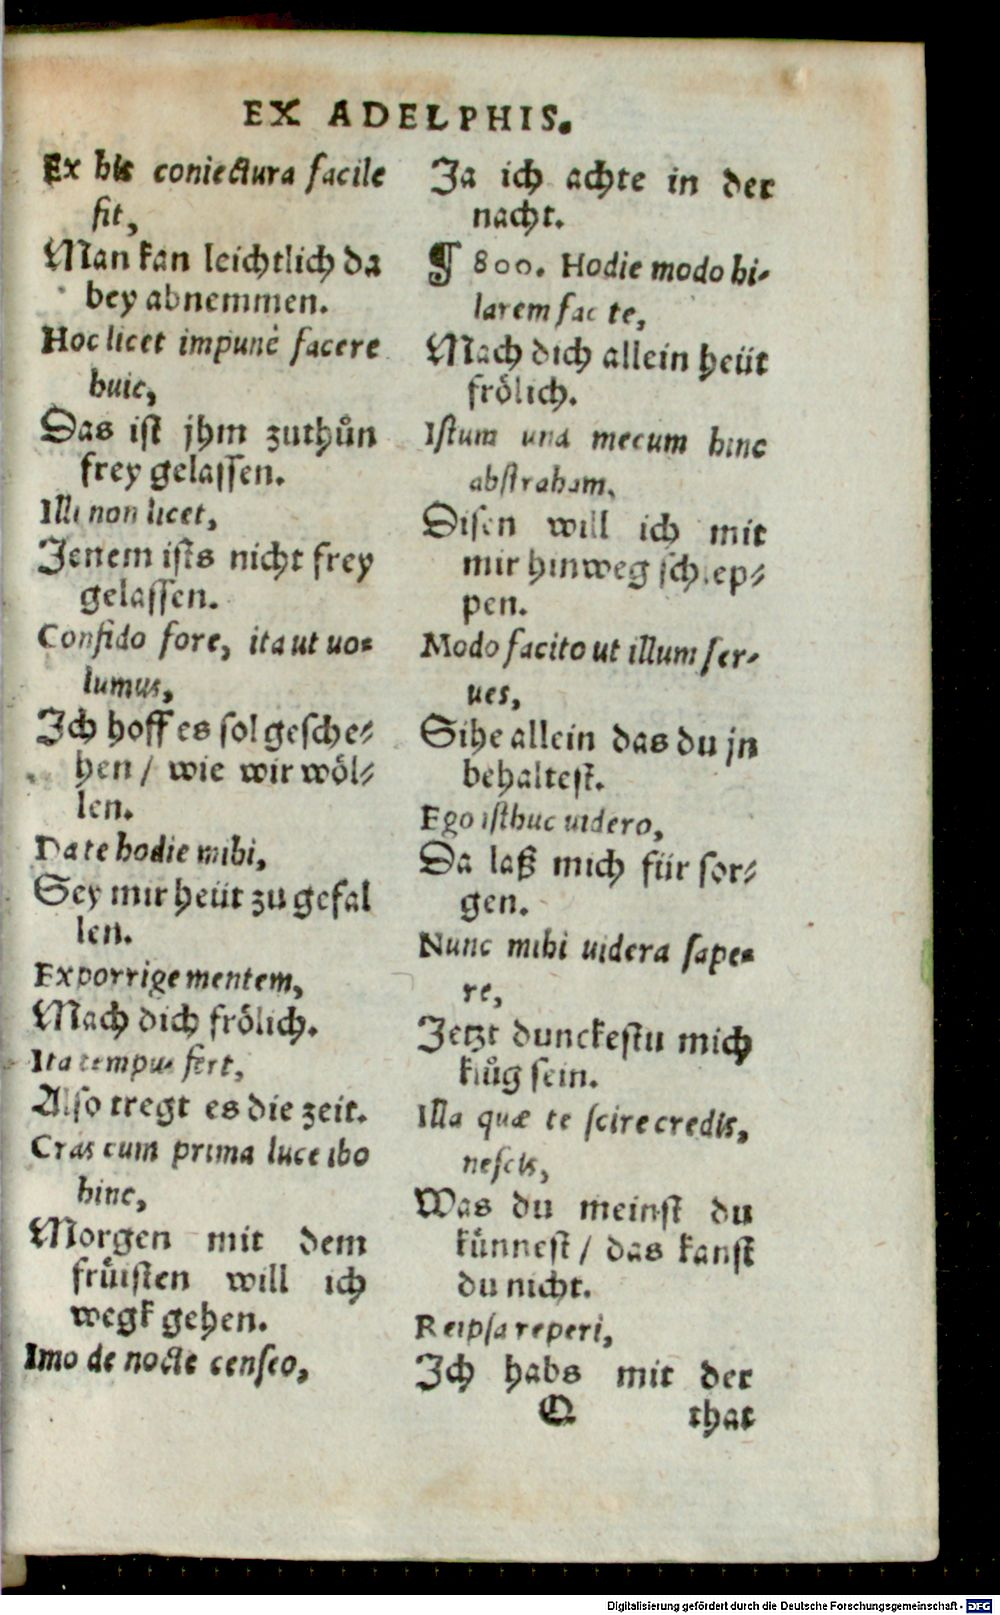 EX ADELPHIS.
Ex his coniectura facile
fit,
Man kan leichtlich da
bey abnemmen.
Hoc licet impunè facere
huic,
Das ist jhm zuthůn
frey gelassen.
Illi non licet,
Jenem ists nicht frey
gelassen.
Confido fore, ita ut uo=
lumus,
Ich hoff es sol gesche=
hen / wie wir wöl=
len.
Da te hodie mihi,
Sey mir heüt zu gefal
len.
Exporrige mentem,
Mach dich frölich.
Ita tempus fert,
Also tregt es die zeit.
Cras cum prima luce ibo
hinc,
Morgen mit dem
früisten will ich
wegk gehen.
Imo de nocte censeo,
Ja ich achte in der
nacht.
¶ 800. Hodie modo hi-
larem fac te,
Mach dich allein heüt
frölich.
Istum una mecum hinc
abstraham,
Disen will ich mit
mir hinweg schlep=
pen.
Modo facito ut illum ser-
ues,
Sihe allein das du jn
behaltest.
Ego isthuc uidero,
Da laß mich für sor=
gen.
Nunc mihi uidera sape=
re,
Jetzt dunckestu mich
klůg sein.
Illa quæ te scire credis,
nescis,
Was du meinst du
künnest / das kanst
du nicht.
Reipsa reperi,
Ich habs mit der
Q that
Digitalisierung gefördert durch die Deutsche Forschungsgemeinschaft - DFG